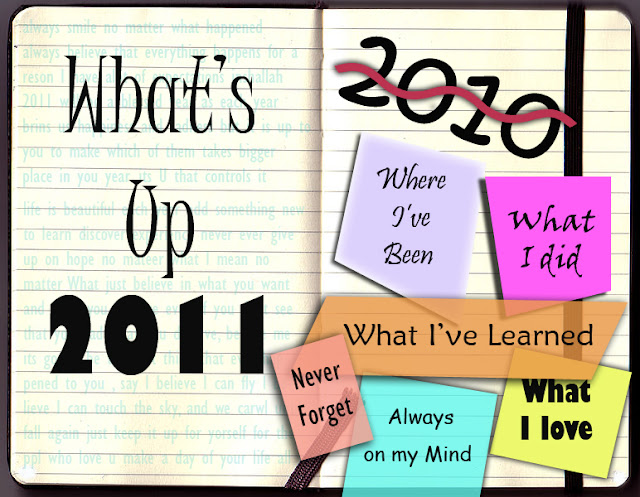 always smile no matter what happened
always believe that everything happens for a
reson I have of in shallah
2011 as each year
brins is up to
you to make which of them takes bigger
place in you year its U that controls it
life is beautiful something new
to learn discover never ever give
up on hope no mateer what I mean no
matter What just believe in what you want
and see
that
its
pened to you , say I believe I can fly I
lieve I can touch the sky, and we carwl
fall again just keep it up for yorself for the
ppl who love u make a day of your life
What's
Up
2011
2010
Where
I've
Been
What
I did
What I've Learned
Never
Forget
Always
on my Mind
What
I love